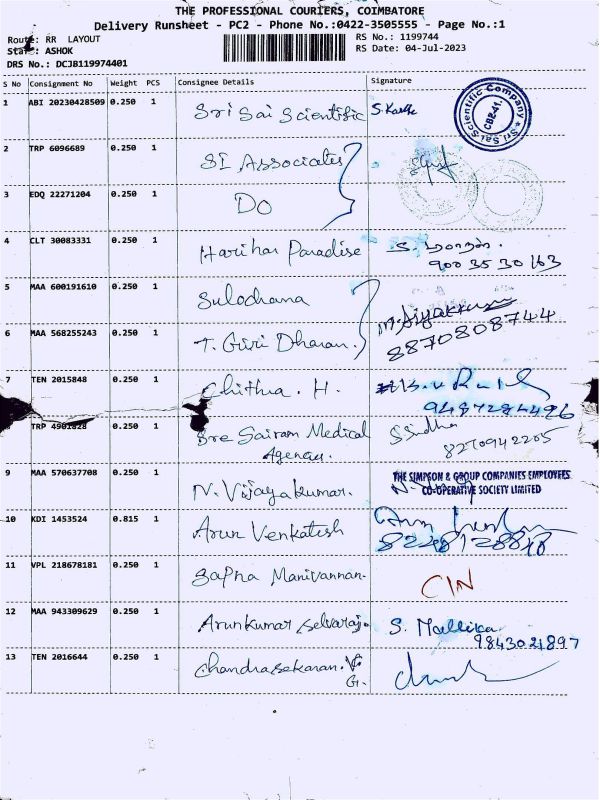 THE PROFESSIONAL COURIERS, COIMBATORE
Delivery Runsheet - PC2 - Phone No.:0422-3505555 - Page No.:1
Route: RR LAYOUT
RS No.: 1199744
Staff: ASHOK
RS Date: 04-Jul-2023
DRS No.: DCJB119974401
S No Consignment No Weight PCS Consignee Details Signature
1 ABI 20230428509 0.250 1 Sri Sai Scientific
Sri Sai Scientific Company
CBE-41.
2 TRP 6096689 0.250 1 SI Associates
3 EDQ 22271204 0.250 1 Do
4 CLT 30083331 0.250 1 Harihar Paradise S.
900 35 30 163
5 MAA 600191610 0.250 1 Sulochana
6 MAA 568255243 0.250 1 T. Giri Dharan.
8870808744
7 TEN 2015848 0.250 1 Chithra. H.
9487284496
TRP 4901828 0.250 1 Sre Sairam Medical Agencies.
8270942205
9 MAA 570637708 0.250 1 N. Vijayakumar.
THE SIMPSON & GROUP COMPANIES EMPLOYEES
CO-OPERATIVE SOCIETY LIMITED
10 KDI 1453524 0.815 1 Arun Venkatesh
11 VPL 218678181 0.250 1 Sapna Manivannan. CIN
12 MAA 943309629 0.250 1 Arunkumar Selvaraj. S. Mallika
9843021897
13 TEN 2016644 0.250 1 Chandrasekaran. V.
G.